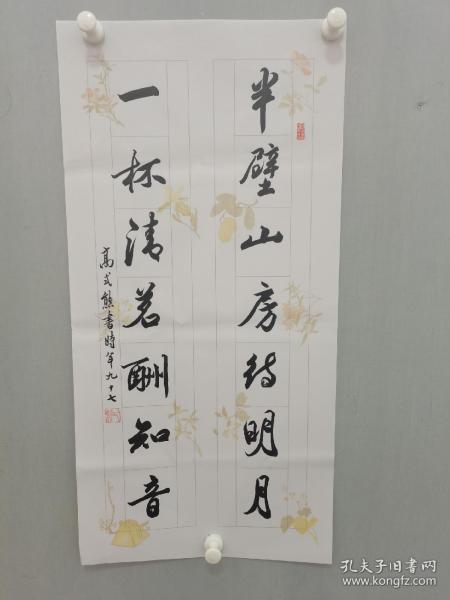 半壁山房待明月
一杯清茗酬知音
高式熊書時年九十七
孔夫子旧书网
www.kongfz.com